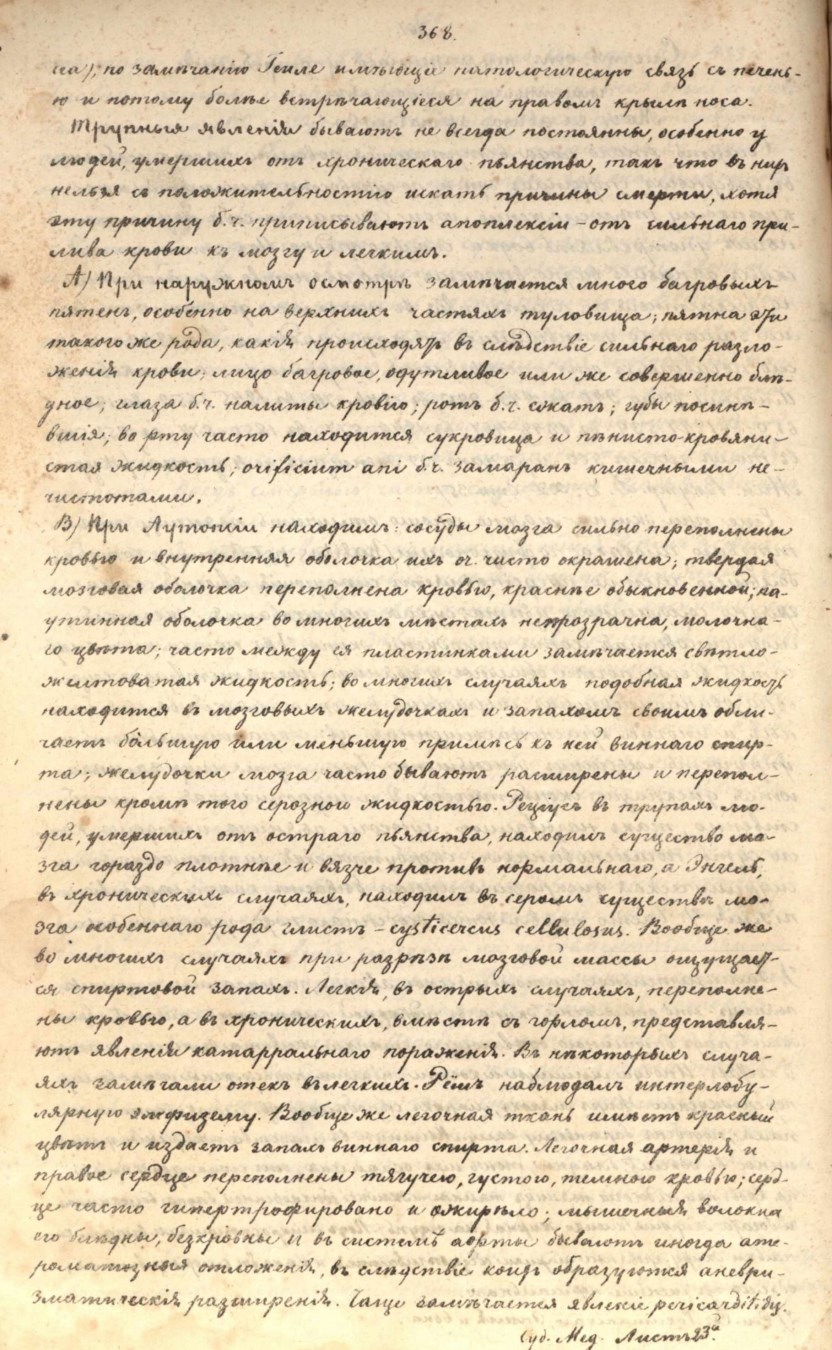 368.
на), по замѣчанію Генле имѣющіе патологическую связь съ печень-
ю и потому болѣе встрѣчающіеся на правомъ крылѣ носа.
Трупныя явленія бываютъ не всегда постоянны, особенно у
людей, умершихъ отъ хроническаго пьянства, такъ что въ нихъ
нельзя съ положительностію искать причины смерти, хотя
эту причину б.ч. приписываютъ апоплексіи – отъ сильнаго при-
лива крови къ мозгу и легкимъ.
А) При наружномъ осмотрѣ замѣчается много багровыхъ
пятенъ, особенно на верхнихъ частяхъ туловища; пятна эти
такого же рода, какія происходятъ въ слѣдствіе сильнаго разло-
женія крови; лицо багровое, одутливое или же совершенно блѣ-
дное; глаза б.ч. налиты кровію; ротъ б.ч. сжатъ; губы посинѣ-
вшія; во рту часто находится сукровица и пѣнисто-кровяни-
стая жидкость; orificium ani б.ч. замаранъ кишечными не-
чистотами.
В) При Аутопсіи находимъ: сосуды мозга сильно переполнены
кровью и внутренняя оболочка ихъ оч. чисто окрашена; твердая
мозговая оболочка переполнена кровью, краснѣе обыкновенной; па-
утинная оболочка во многихъ мѣстахъ непрозрачна, молочна-
го цвѣта; часто между ея пластинками замѣчается свѣтло-
желтоватая жидкость; во многихъ случаяхъ подобная жидкость
находится въ мозговыхъ желудочкахъ и запахомъ своимъ обли-
чаетъ бо́льшую или меньшую примѣсь къ ней виннаго спир-
та; желудочки мозга часто бываютъ расширены и перепол-
нены кромѣ того серозною жидкостью. Реціусъ въ трупахъ лю-
дей, умершихъ отъ остраго пьянства, находилъ существо мо-
зга гораздо плотнѣе и вязче противъ нормальнаго, а Энгель,
въ хроническихъ случаяхъ, находилъ въ серомъ существѣ мо-
зга особеннаго рода глистъ – cysticercus cellulosus. Вообще же
во многихъ случаяхъ при разрѣзѣ мозговой массы ощущает-
ся спиртовой запахъ. Легкія, въ острыхъ случаяхъ, переполне-
ны кровью, а въ хроническихъ, вмѣстѣ съ горломъ, представля-
ютъ явленія катарральнаго пораженія. Въ нѣкоторыхъ случа-
яхъ замѣчали отекъ въ легкихъ. Рёшъ наблюдалъ интерлобу-
лярную эмфизему. Вообще же легочная ткань имѣетъ красный
цвѣтъ и издаетъ запахъ виннаго спирта. Легочная артерія и
правое сердце переполнены тягучею, густою, темною кровью; серд-
це часто гипертрофировано и ожирѣло; мышечныя волокна
его блѣдны, безкровны и въ системѣ аорты бываютъ иногда ате-
роматозныя отложенія, въ слѣдствіе коихъ образуются аневри-
зматическія расширенія. Чаще замѣчается явленіе pericarditidis.
Суд. Мед. Листъ 23й.